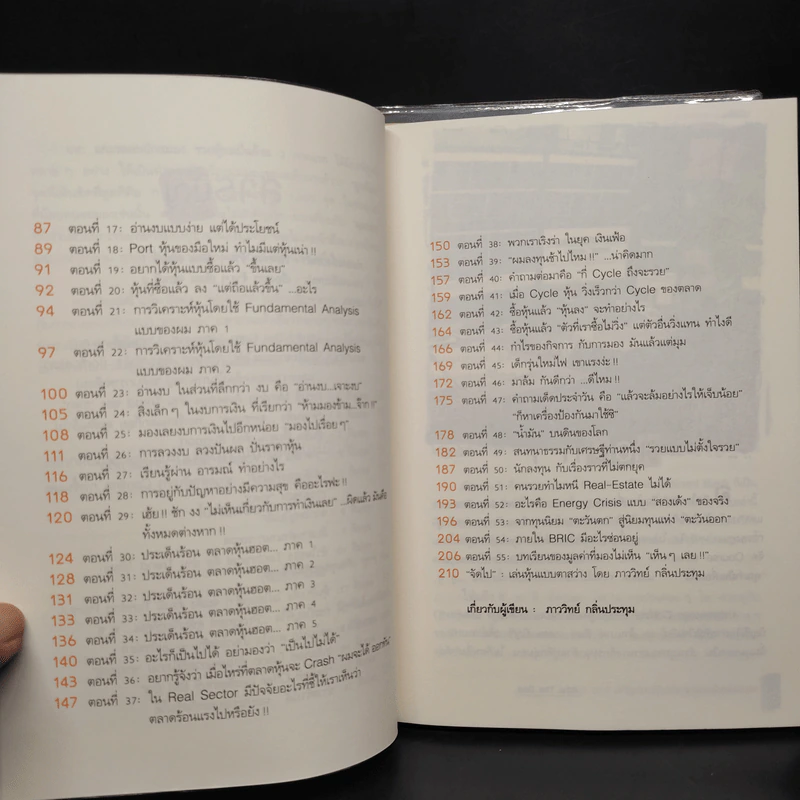 87 ตอนที่ 17: อ่านงบแบบง่าย แต่ได้ประโยชน์
89 ตอนที่ 18: Port หุ้นของมือใหม่ ทำไมมีแต่หุ้นเน่า !!
91 ตอนที่ 19: อยากได้หุ้นแบบซื้อแล้ว "ขึ้นเลย"
92 ตอนที่ 20: หุ้นที่ซื้อแล้ว ลง "แต่ถือแล้วขึ้น" ...อะไร
94 ตอนที่ 21: การวิเคราะห์หุ้นโดยใช้ Fundamental Analysis
แบบของผม ภาค 1
97 ตอนที่ 22: การวิเคราะห์หุ้นโดยใช้ Fundamental Analysis
แบบของผม ภาค 2
100 ตอนที่ 23: อ่านงบ ในส่วนที่ลึกกว่า งบ คือ "อ่านงบ...เจาะงบ"
105 ตอนที่ 24: สิ่งเล็กๆ ในงบการเงิน ที่เรียกว่า "ห้ามมองข้าม...จ๊าก !!"
108 ตอนที่ 25: มองเลยงบการเงินไปอีกหน่อย "มองไปเรื่อยๆ"
111 ตอนที่ 26: การลวงงบ ลวงปันผล ปั่นราคาหุ้น
116 ตอนที่ 27: เรียนรู้ผ่าน อารมณ์ ทำอย่างไร
118 ตอนที่ 28: การอยู่กับปัญหาอย่างมีความสุข คืออะไรฟ่ะ !!
120 ตอนที่ 29: เฮ้ย !! ชัก งง "ไม่เห็นเกี่ยวกับการทำเงินเลย" ...ผิดแล้ว มันคือ
ทั้งหมดต่างหาก !!
124 ตอนที่ 30: ประเด็นร้อน ตลาดหุ้นฮอต... ภาค 1
128 ตอนที่ 31: ประเด็นร้อน ตลาดหุ้นฮอต... ภาค 2
131 ตอนที่ 32: ประเด็นร้อน ตลาดหุ้นฮอต... ภาค 3
133 ตอนที่ 33: ประเด็นร้อน ตลาดหุ้นฮอต... ภาค 4
136 ตอนที่ 34: ประเด็นร้อน ตลาดหุ้นฮอต... ภาค 5
140 ตอนที่ 35: อะไรก็เป็นไปได้ อย่ามองว่า "เป็นไปไม่ได้"
143 ตอนที่ 36: อยากรู้จังว่า เมื่อไหร่ที่ตลาดหุ้นจะ Crash "ผมจะได้ ออกทัน"
147 ตอนที่ 37: ใน Real Sector มีปัจจัยอะไรที่ชี้ให้เราเห็นว่า
ตลาดร้อนแรงไปหรือยัง !!
150 ตอนที่ 38: พวกเราเริงร่า ในยุค เงินเฟ้อ
153 ตอนที่ 39: "ผมลงทุนช้าไปไหม !!" ...น่าคิดมาก
157 ตอนที่ 40: คำถามต่อมาคือ "กี่ Cycle ถึงจะรวย"
159 ตอนที่ 41: เมื่อ Cycle หุ้น วิ่งเร็วกว่า Cycle ของตลาด
162 ตอนที่ 42: ซื้อหุ้นแล้ว "หุ้นลง" จะทำอย่างไร
164 ตอนที่ 43: ซื้อหุ้นแล้ว "ตัวที่เราซื้อไม่วิ่ง" แต่ตัวอื่นวิ่งแทน ทำไงดี
166 ตอนที่ 44: กำไรของกิจการ กับการมอง มันแล้วแต่มุม
169 ตอนที่ 45: เด็กรุ่นใหม่ไฟ เขาแรงง่ะ !!
172 ตอนที่ 46: มาล้ม กันดีกว่า ...ดีไหม !!
175 ตอนที่ 47: คำถามเด็ดประจำวัน คือ "แล้วจะล้มอย่างไรให้เจ็บน้อย"
"ก็หาเครื่องป้องกันมาใช้ซิ"
178 ตอนที่ 48: "น้ำมัน" บนดินของโลก
182 ตอนที่ 49: สนทนาธรรมกับเศรษฐีท่านหนึ่ง "รวยแบบไม่ตั้งใจรวย"
187 ตอนที่ 50: นักลงทุน กับเรื่องราวที่ไม่ตกยุค
190 ตอนที่ 51: คนรวยทำไมหนี Real-Estate ไม่ได้
193 ตอนที่ 52: อะไรคือ Energy Crisis แบบ "สองเด้ง" ของจริง
196 ตอนที่ 53: จากทุนนิยม "ตะวันตก" สู่นิยมทุนแห่ง "ตะวันออก"
204 ตอนที่ 54: ภายใน BRIC มีอะไรซ่อนอยู่
206 ตอนที่ 55: บทเรียนของมูลค่าที่มองไม่เห็น "เห็นๆ เลย !!"
210 "จัดไป" : เล่นหุ้นแบบตาสว่าง โดย ภาววิทย์ กลิ่นประทุม
เกี่ยวกับผู้เขียน : ภาววิทย์ กลิ่นประทุม